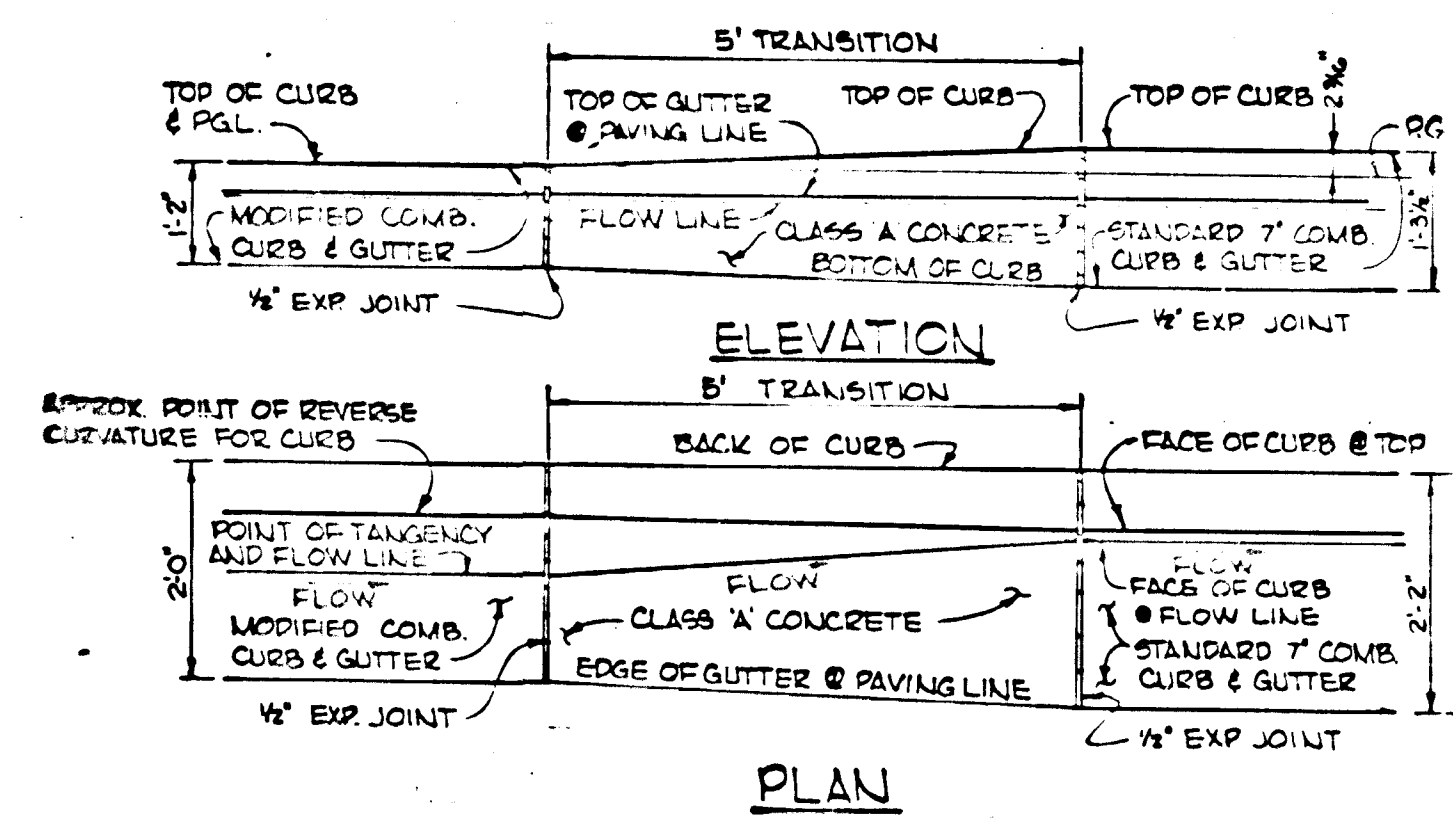 5' TRANSITION
TOP OF CURB
& PGL.
TOP OF GUTTER
@ PAVING LINE
TOP OF CURB
TOP OF CURB
2 3/16"
P.G
1'-2"
MODIFIED COMB.
CURB & GUTTER
FLOW LINE
CLASS 'A' CONCRETE
BOTTOM OF CURB
STANDARD 7" COMB.
CURB & GUTTER
1'-3½"
½" EXP. JOINT
½" EXP. JOINT
ELEVATION
5' TRANSITION
APPROX. POINT OF REVERSE
CURVATURE FOR CURB
BACK OF CURB
FACE OF CURB @ TOP
POINT OF TANGENCY
AND FLOW LINE
2'-0"
FLOW
MODIFIED COMB.
CURB & GUTTER
FLOW
CLASS 'A' CONCRETE
EDGE OF GUTTER @ PAVING LINE
FLOW
FACE OF CURB
@ FLOW LINE
STANDARD 7" COMB.
CURB & GUTTER
2'-2"
½" EXP. JOINT
½" EXP JOINT
PLAN